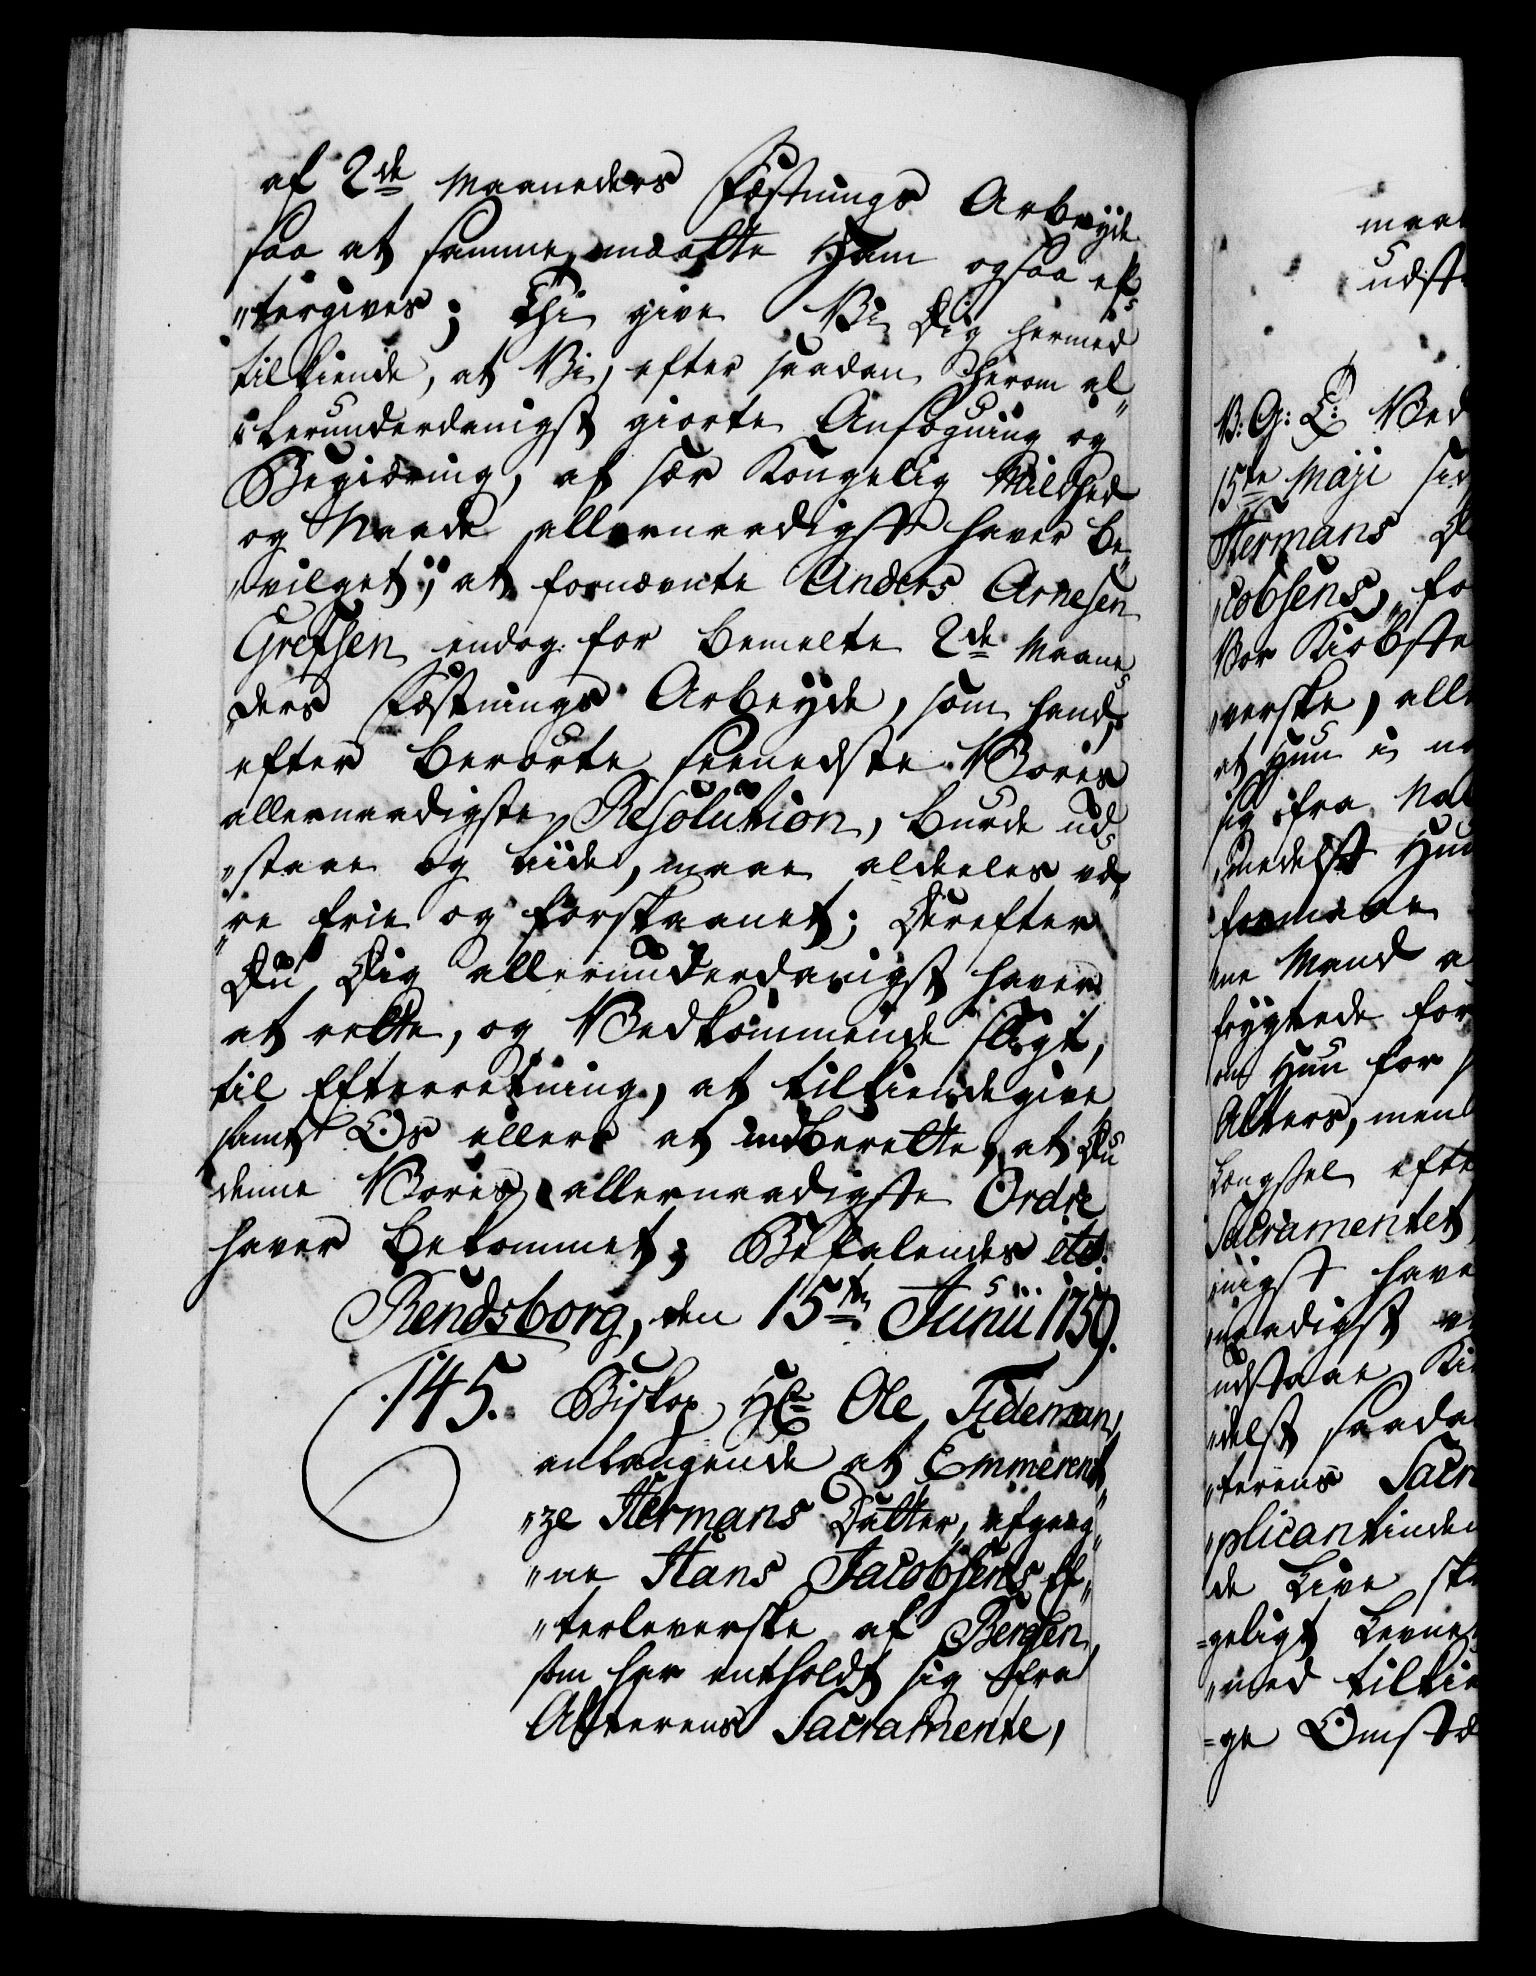 af 2de Maaneders Fæstnings Arbeyde
saa at samme maatte Ham ogsaa ef-
"tergives; Thi give Vi Dig hermed
tilkiende, at Vi, efter saadan herom al-
"lerunderdanigst giorte Ansøgning og
Begiæring, af sær Kongelig Mildhed
og Naade allernaadigst haver be-
"vilget, at fornævnte Anders Arnesen
Grefsen endog for bemelte 2de Maane-
"ders Fæstnings Arbeyde, som hand,
efter berørte seenedste Vores
allernaadigste Resolution, burde ud-
"staae og liide, maae aldeeles væ-
"re frie og forskaanet; Derefter
Du Dig allerunderdanigst haver
at rette, og Vedkommende sligt,
til Efterretning, at tilkiendegive
samt Os ellers at indberette, at Du
denne Vores allernaadigste Ordre
haver bekommet; Befalendes etc.
Rendsborg, den 15ten Junii 1759.
145. Biskop Hr. Ole Tideman,
anlangende at Emmerent-
"ze Hermans Datter, afgang-
"ne Hans Jacobsens Ef-
"terleverske af Bergen,
som har entholdt sig fra
Alterens Sacramente,
maa
udst
V: G: T: Ved
15de Maji sid
Hermans D
"cobsens, fo
Vor Kiøbste
"verske, alle
at Hun i n
sig fra Na
"medelst Hun
formeene
"ne Mand a
frygtede for
om Hun for
Alters, men
Længsel efte
Sacramentet
"nigst have
"naadigst v
udstaae Ki
"delst saada
"terens Sacr
"plicantinden
de Live ske
=geligt Levne
"med tilkie
=ge Omstæ